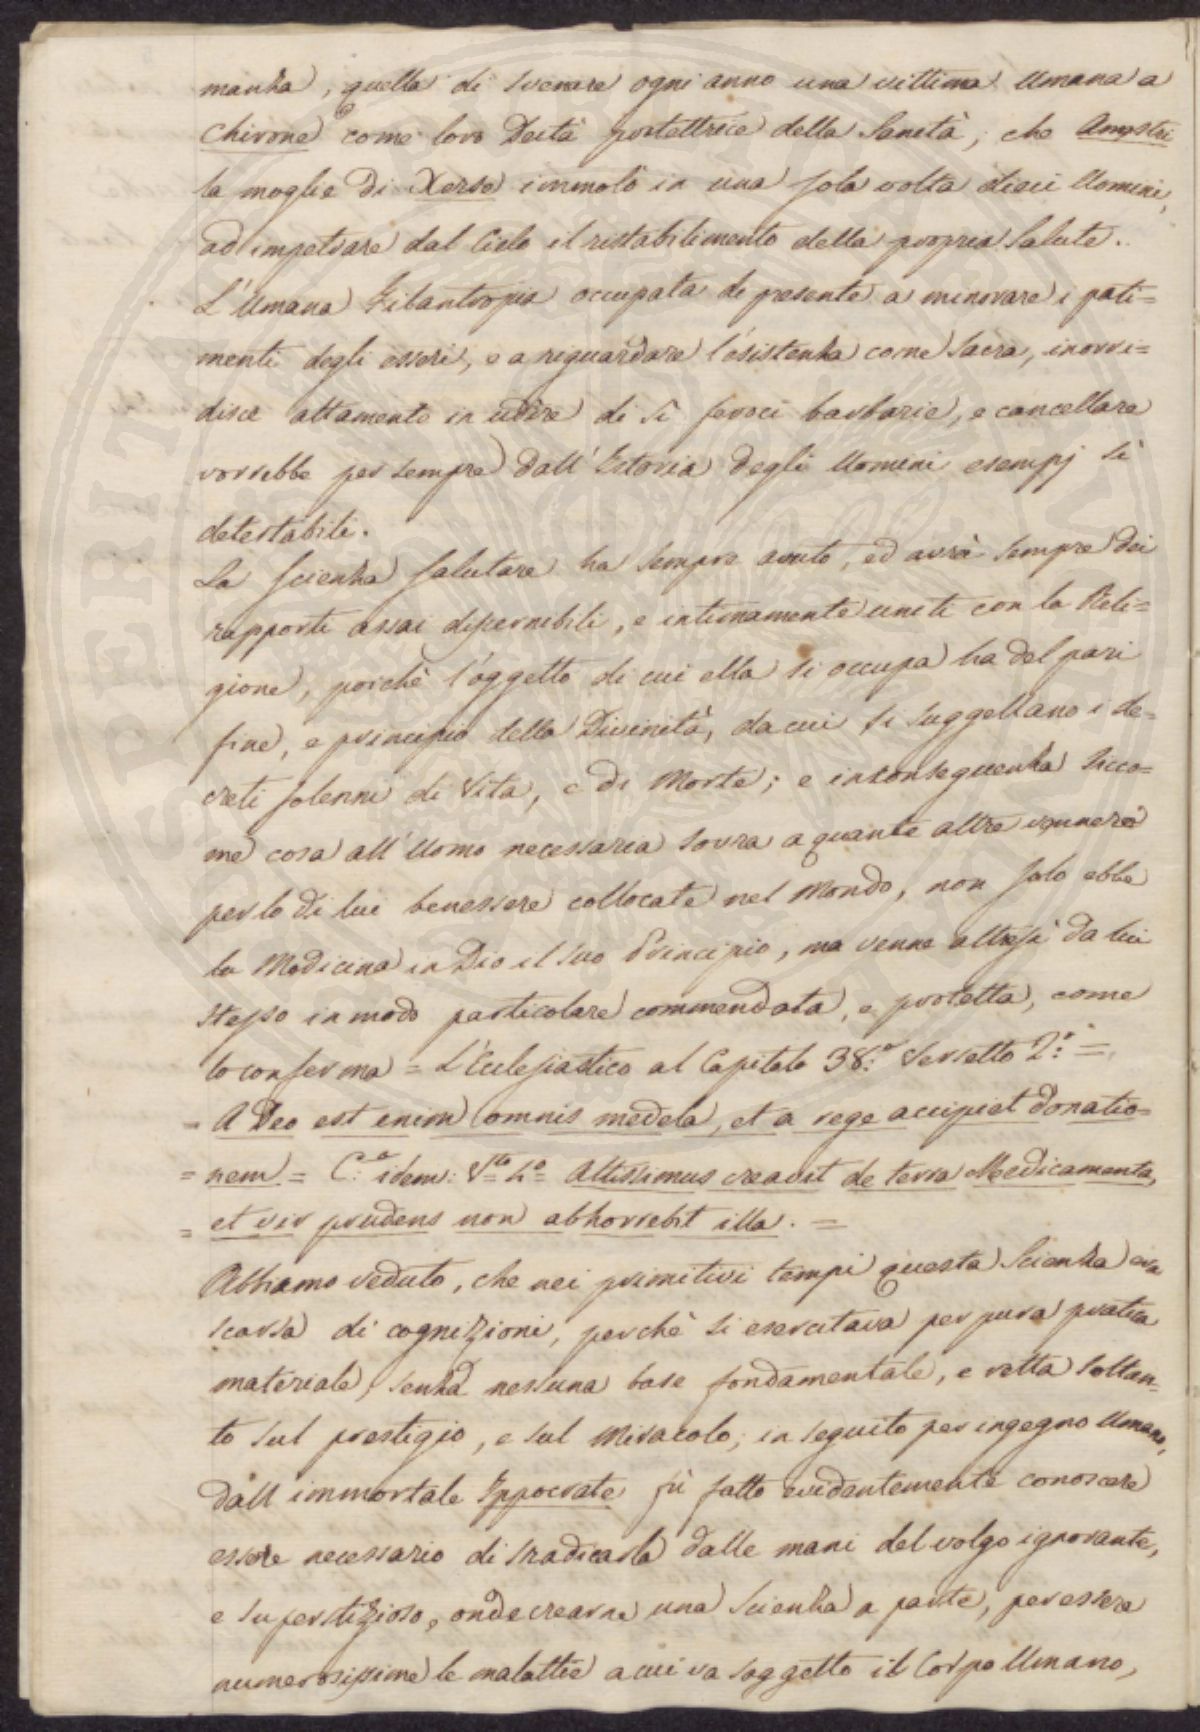 manza, quella di svenare ogni anno una vittima Umana a
Chirone come loro Deità protettrice della Sanità, che Amystri
la moglie di Xerse immolò in una sola volta dieci Uomini,
ad impetrare dal Cielo il ristabilimento della propria Salute.
L'Umana Filantropia occupata di presente a minorare i pati=
menti degli esseri, e a riguardare l'esistenza come Sacra, inorri=
disce altamente in udire di sì feroci barbarie, e cancellare
vorrebbe per sempre dall'Istoria degli Uomini esempj sì
detestabili.
La Scienza Salutare ha sempre avuto, ed avrà sempre dei
rapporti assai discernibili, e intimamente uniti con la Reli=
gione, perchè l'oggetto di cui ella si occupa ha del pari
fine, e principio della Divinità, da cui si suggellano i de=
creti solenni di Vita, e di Morte; e in conseguenza sicco=
me cosa all'Uomo necessaria sovra a quante altre vennero
per lo di lui benessere collocate nel Mondo, non solo ebbe
la Medicina in Dio il suo Principio, ma venne altresì da lui
stesso in modo particolare commendata, e protetta, come
lo conferma = L'Eclesiastico al Capitolo 38:º Versetto 2:º =
= A Deo est enim omnis medela, et a rege accipiet donatio=
= nem. = C:º idem: V:to 4:º Altissimus creavit de terra Medicamenta,
= et vir prudens non abhorrebit illa. =
Abbiamo veduto, che nei primitivi tempi questa Scienza era
scarsa di cognizioni, perchè si esercitava per pura pratica
materiale, senza nessuna base fondamentale, e retta soltan=
to sul prestigio, e sul Miracolo; in seguito per ingegno Umano,
dall'immortale Ippocrate fù fatto evidentemente conoscere
essere necessario di sradicarla dalle mani del volgo ignorante,
e superstizioso, onde crearne una Scienza a parte, per essere
numerosissime le malattie a cui va soggetto il Corpo Umano,